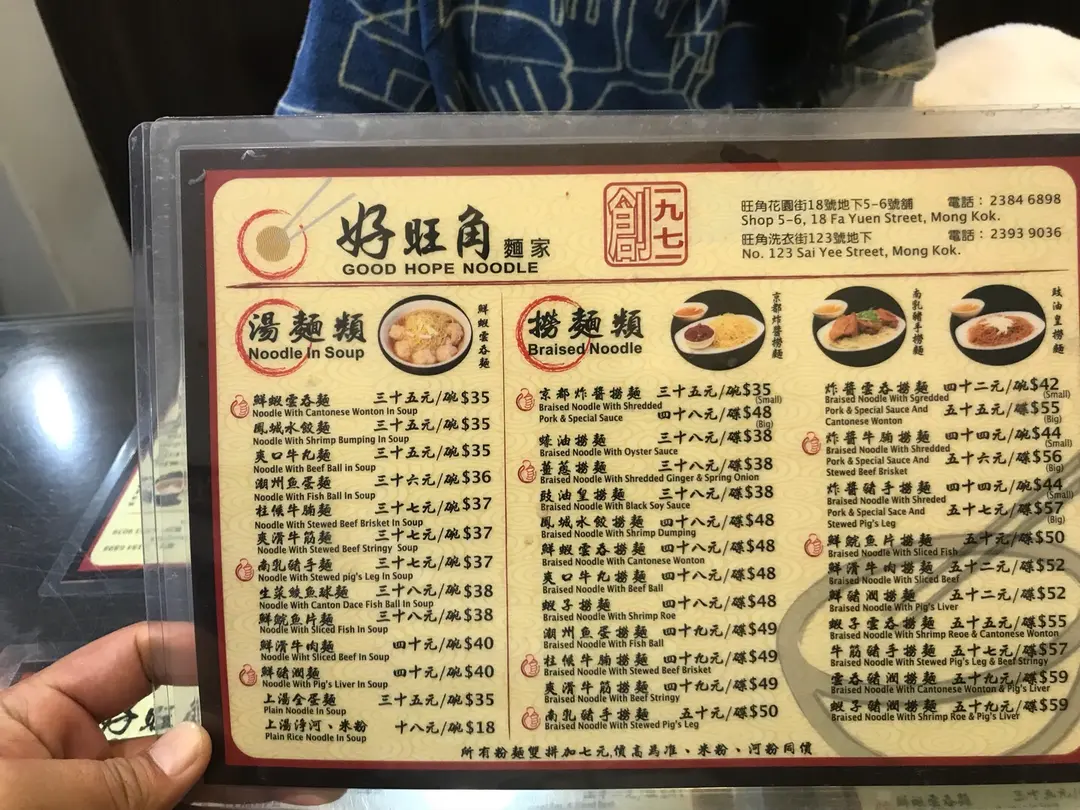 好旺角麵家
GOOD HOPE NOODLE
創一九七一
旺角花園街18號地下5-6號舖 電話：2384 6898
Shop 5-6, 18 Fa Yuen Street, Mong Kok.
旺角洗衣街123號地下 電話：2393 9036
No. 123 Sai Yee Street, Mong Kok.
湯麵類
Noodle In Soup
鮮蝦雲吞麵
鮮蝦雲吞麵 三十五元/碗$35
Noodle With Cantonese Wonton In Soup
鳳城水餃麵 三十五元/碗$35
Noodle With Shrimp Bumping In Soup
爽口牛丸麵 三十五元/碗$35
Noodle With Beef Ball in Soup
潮州魚蛋麵 三十六元/碗$36
Noodle With Fish Ball In Soup
柱候牛腩麵 三十七元/碗$37
Noodle With Stewed Beef Brisket In Soup
爽滑牛筋麵 三十七元/碗$37
Noodle With Stewed Beef Stringy Soup
南乳豬手麵 三十七元/碗$37
Noodle With Stewed pig's Leg In Soup
生菜鯪魚球麵 三十八元/碗$38
Noodle With Canton Dace Fish Ball In Soup
鮮鯇魚片麵 三十八元/碗$38
Noodle With Sliced Fish In Soup
鮮滑牛肉麵 四十元/碗$40
Noodle Wiht Sliced Beef In Soup
鮮豬潤麵 四十元/碗$40
Noodle With Pig's Liver In Soup
上湯全蛋麵 三十五元/碗$35
Plain Noodle In Soup
上湯淨河、米粉 十八元/碗$18
Plain Rice Noodle In Soup
撈麵類
Braised Noodle
京都炸醬撈麵
南乳豬手撈麵
豉油皇撈麵
京都炸醬撈麵 三十五元/碗$35
Braised Noodle With Shredded (Small)
Pork & Special Sauce 四十八元/碟$48
(Big)
蠔油撈麵 三十八元/碟$38
Braised Noodle With Oyster Sauce
薑蔥撈麵 三十八元/碟$38
Braised Noodle With Shredded Ginger & Spring Onion
豉油皇撈麵 三十八元/碟$38
Braised Noodle With Black Soy Sauce
鳳城水餃撈麵 四十八元/碟$48
Braised Noodle With Shrimp Dumping
鮮蝦雲吞撈麵 四十八元/碟$48
Braised Noodle With Cantonese Wonton
爽口牛丸撈麵 四十八元/碟$48
Braised Noodle With Beef Ball
蝦子撈麵 四十八元/碟$48
Braised Noodle With Shrimp Roe
潮州魚蛋撈麵 四十九元/碟$49
Braised Noodle With Fish Ball
柱候牛腩撈麵 四十九元/碟$49
Braised Noodle With Stewed Beef Brisket
爽滑牛筋撈麵 四十九元/碟$49
Braised Noodle With Beef Stringy
南乳豬手撈麵 五十元/碟$50
Braised Noodle With Stewed Pig's Leg
炸醬雲吞撈麵 四十二元/碗$42
Braised Noodle With Sgredded (Small)
Pork & Special Sauce And 五十五元/碟$55
Cantonese Wonton (Big)
炸醬牛腩撈麵 四十四元/碗$44
Braised Noodle With Shredded (Small)
Pork & Special Sauce And 五十六元/碟$56
Stewed Beef Brisket (Big)
炸醬豬手撈麵 四十四元/碗$44
Braised Noodle With Shreded (Small)
Pork & Special Sace And 五十七元/碟$57
Stewed Pig's Leg (Big)
鮮鯇魚片撈麵 五十元/碟$50
Braised Noodle With Sliced Fish
鮮滑牛肉撈麵 五十二元/碟$52
Braised Noodle With Sliced Beef
鮮豬潤撈麵 五十二元/碟$52
Braised Noodle With Pig's Liver
蝦子雲吞撈麵 五十五元/碟$55
Braised Noodle With Shrimp Reoe & Cantonese Wonton
牛筋豬手撈麵 五十七元/碟$57
Braised Noodle With Stewed Pig's Leg & Beef Stringy
雲吞豬潤撈麵 五十九元/碟$59
Braised Noodle With Cantonese Wonton & Pig's Liver
蝦子豬潤撈麵 五十九元/碟$59
Braised Noodle With Shrimp Roe & Pig's Liver
所有粉麵雙拼加七元,價高為准、米粉、河粉同價
好旺